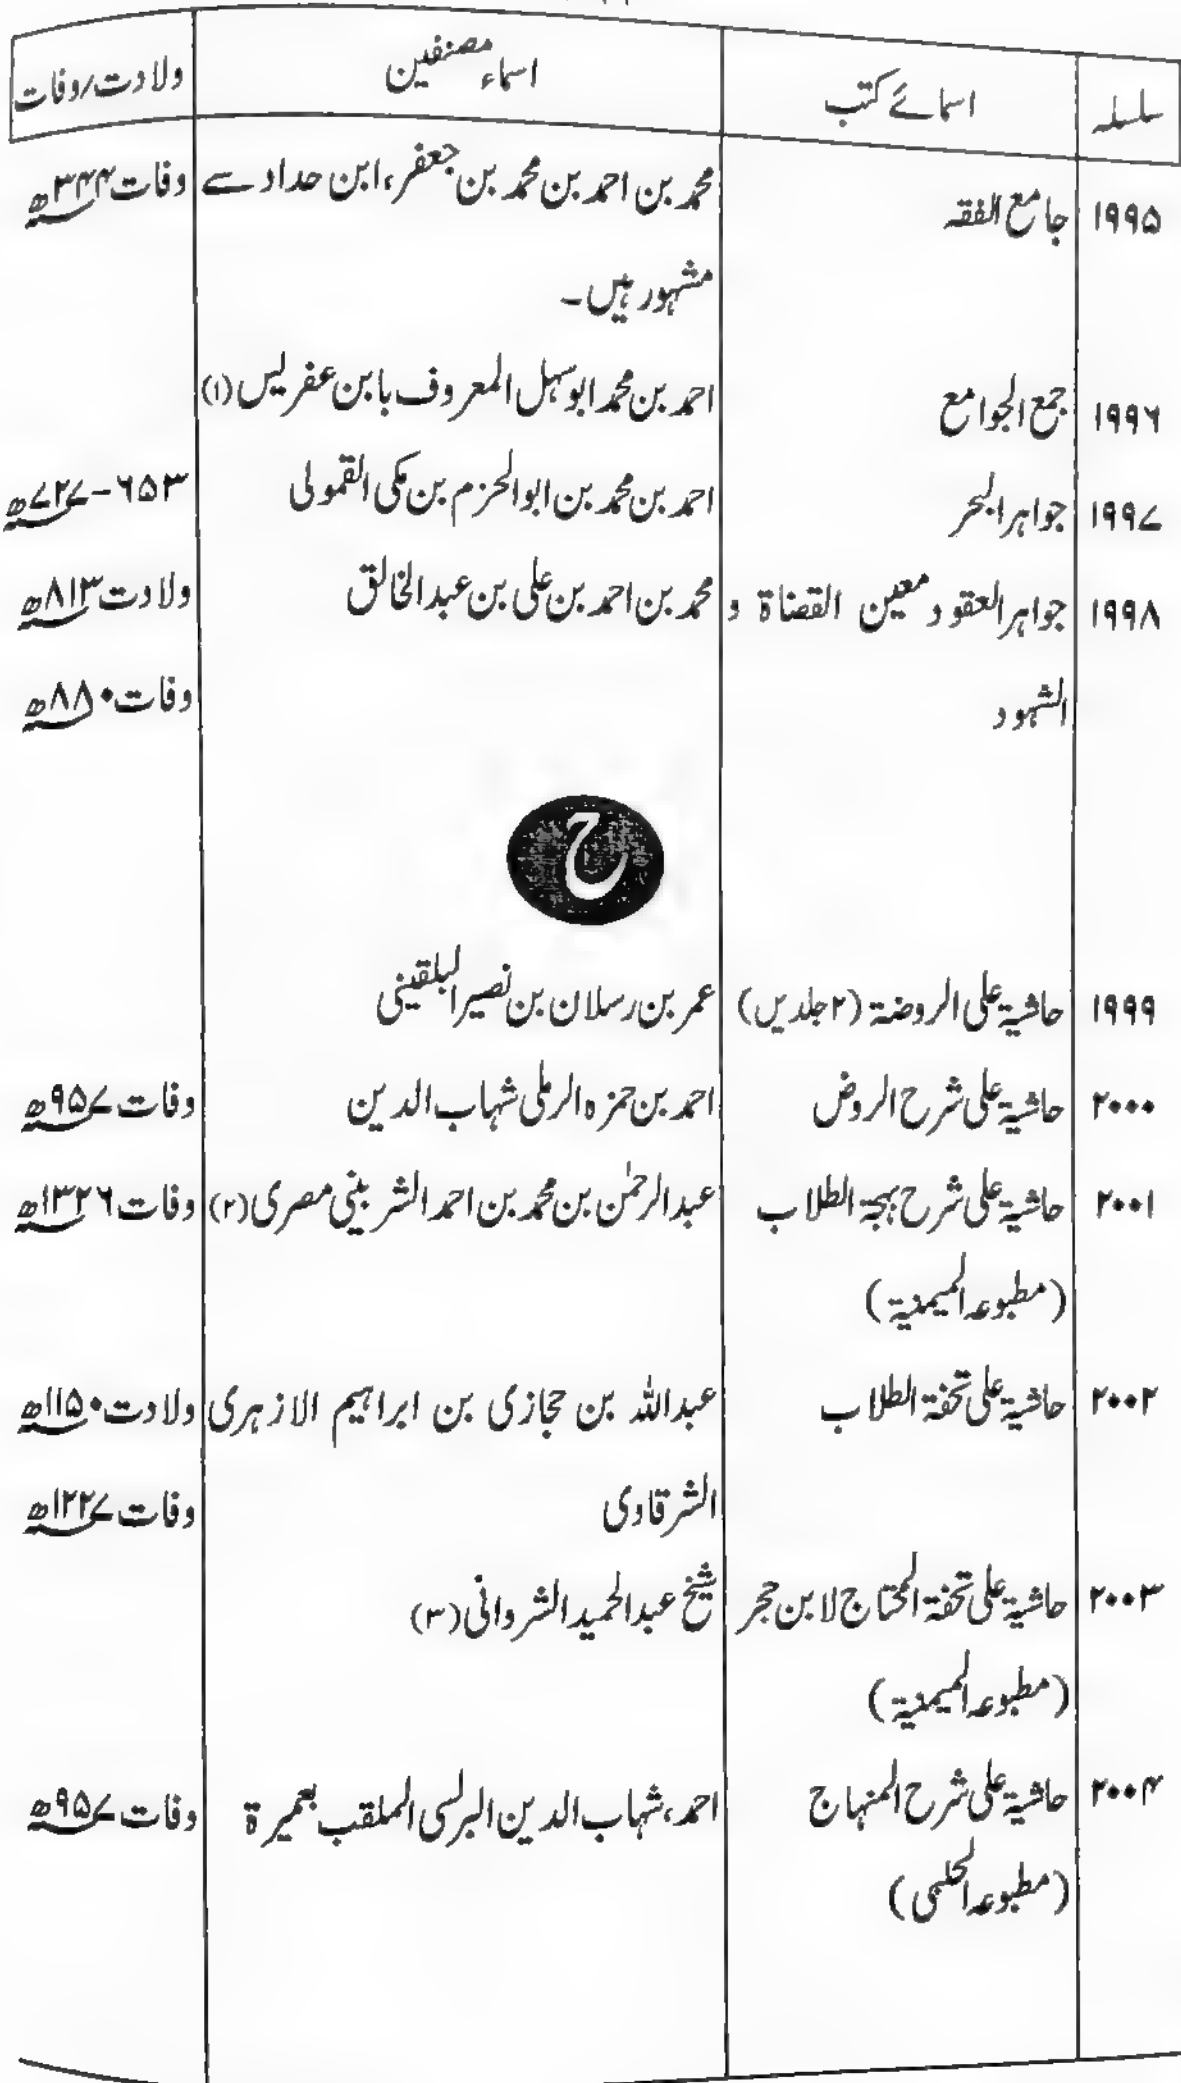 سلسلہ اسمائے کتب اسماء مصنفین ولادت/وفات
۱۹۹۵ جامع الفقہ محمد بن احمد بن محمد بن جعفر، ابن حداد سے وفات ۳۴۴ھ
مشہور ہیں۔
۱۹۹۶ جمع الجوامع احمد بن محمد ابوسہل المعروف بابن عفریس (۱)
۱۹۹۷ جواہر البحر احمد بن محمد بن ابوالحزم بن مکی القمولی ۶۵۳-۷۲۷ھ
۱۹۹۸ جواہر العقود معین القضاة و محمد بن احمد بن علی بن عبدالخالق ولادت ۸۱۳ھ
الشہود وفات ۸۸۰ھ
ح
۱۹۹۹ حاشیۃ علی الروضۃ (۲ جلدیں) عمر بن رسلان بن نصیر البلقینی
۲۰۰۰ حاشیۃ علی شرح الروض احمد بن حمزہ الرملی شہاب الدین وفات ۹۵۷ھ
۲۰۰۱ حاشیۃ علی شرح بہجۃ الطلاب عبدالرحمٰن بن محمد بن احمد الشربینی مصری (۲) وفات ۱۳۲۶ھ
(مطبوعہ المیمنیۃ)
۲۰۰۲ حاشیۃ علی تحفۃ الطلاب عبداللہ بن حجازی بن ابراہیم الازہری ولادت ۱۱۵۰ھ
الشرقاوی وفات ۱۲۲۷ھ
۲۰۰۳ حاشیۃ علی تحفۃ المحتاج لابن حجر شیخ عبدالحمید الشروانی (۳)
(مطبوعہ المیمنیۃ)
۲۰۰۴ حاشیۃ علی شرح المنہاج احمد، شہاب الدین البرلسی الملقب بعمیرة وفات ۹۵۷ھ
(مطبوعہ الحلمی)